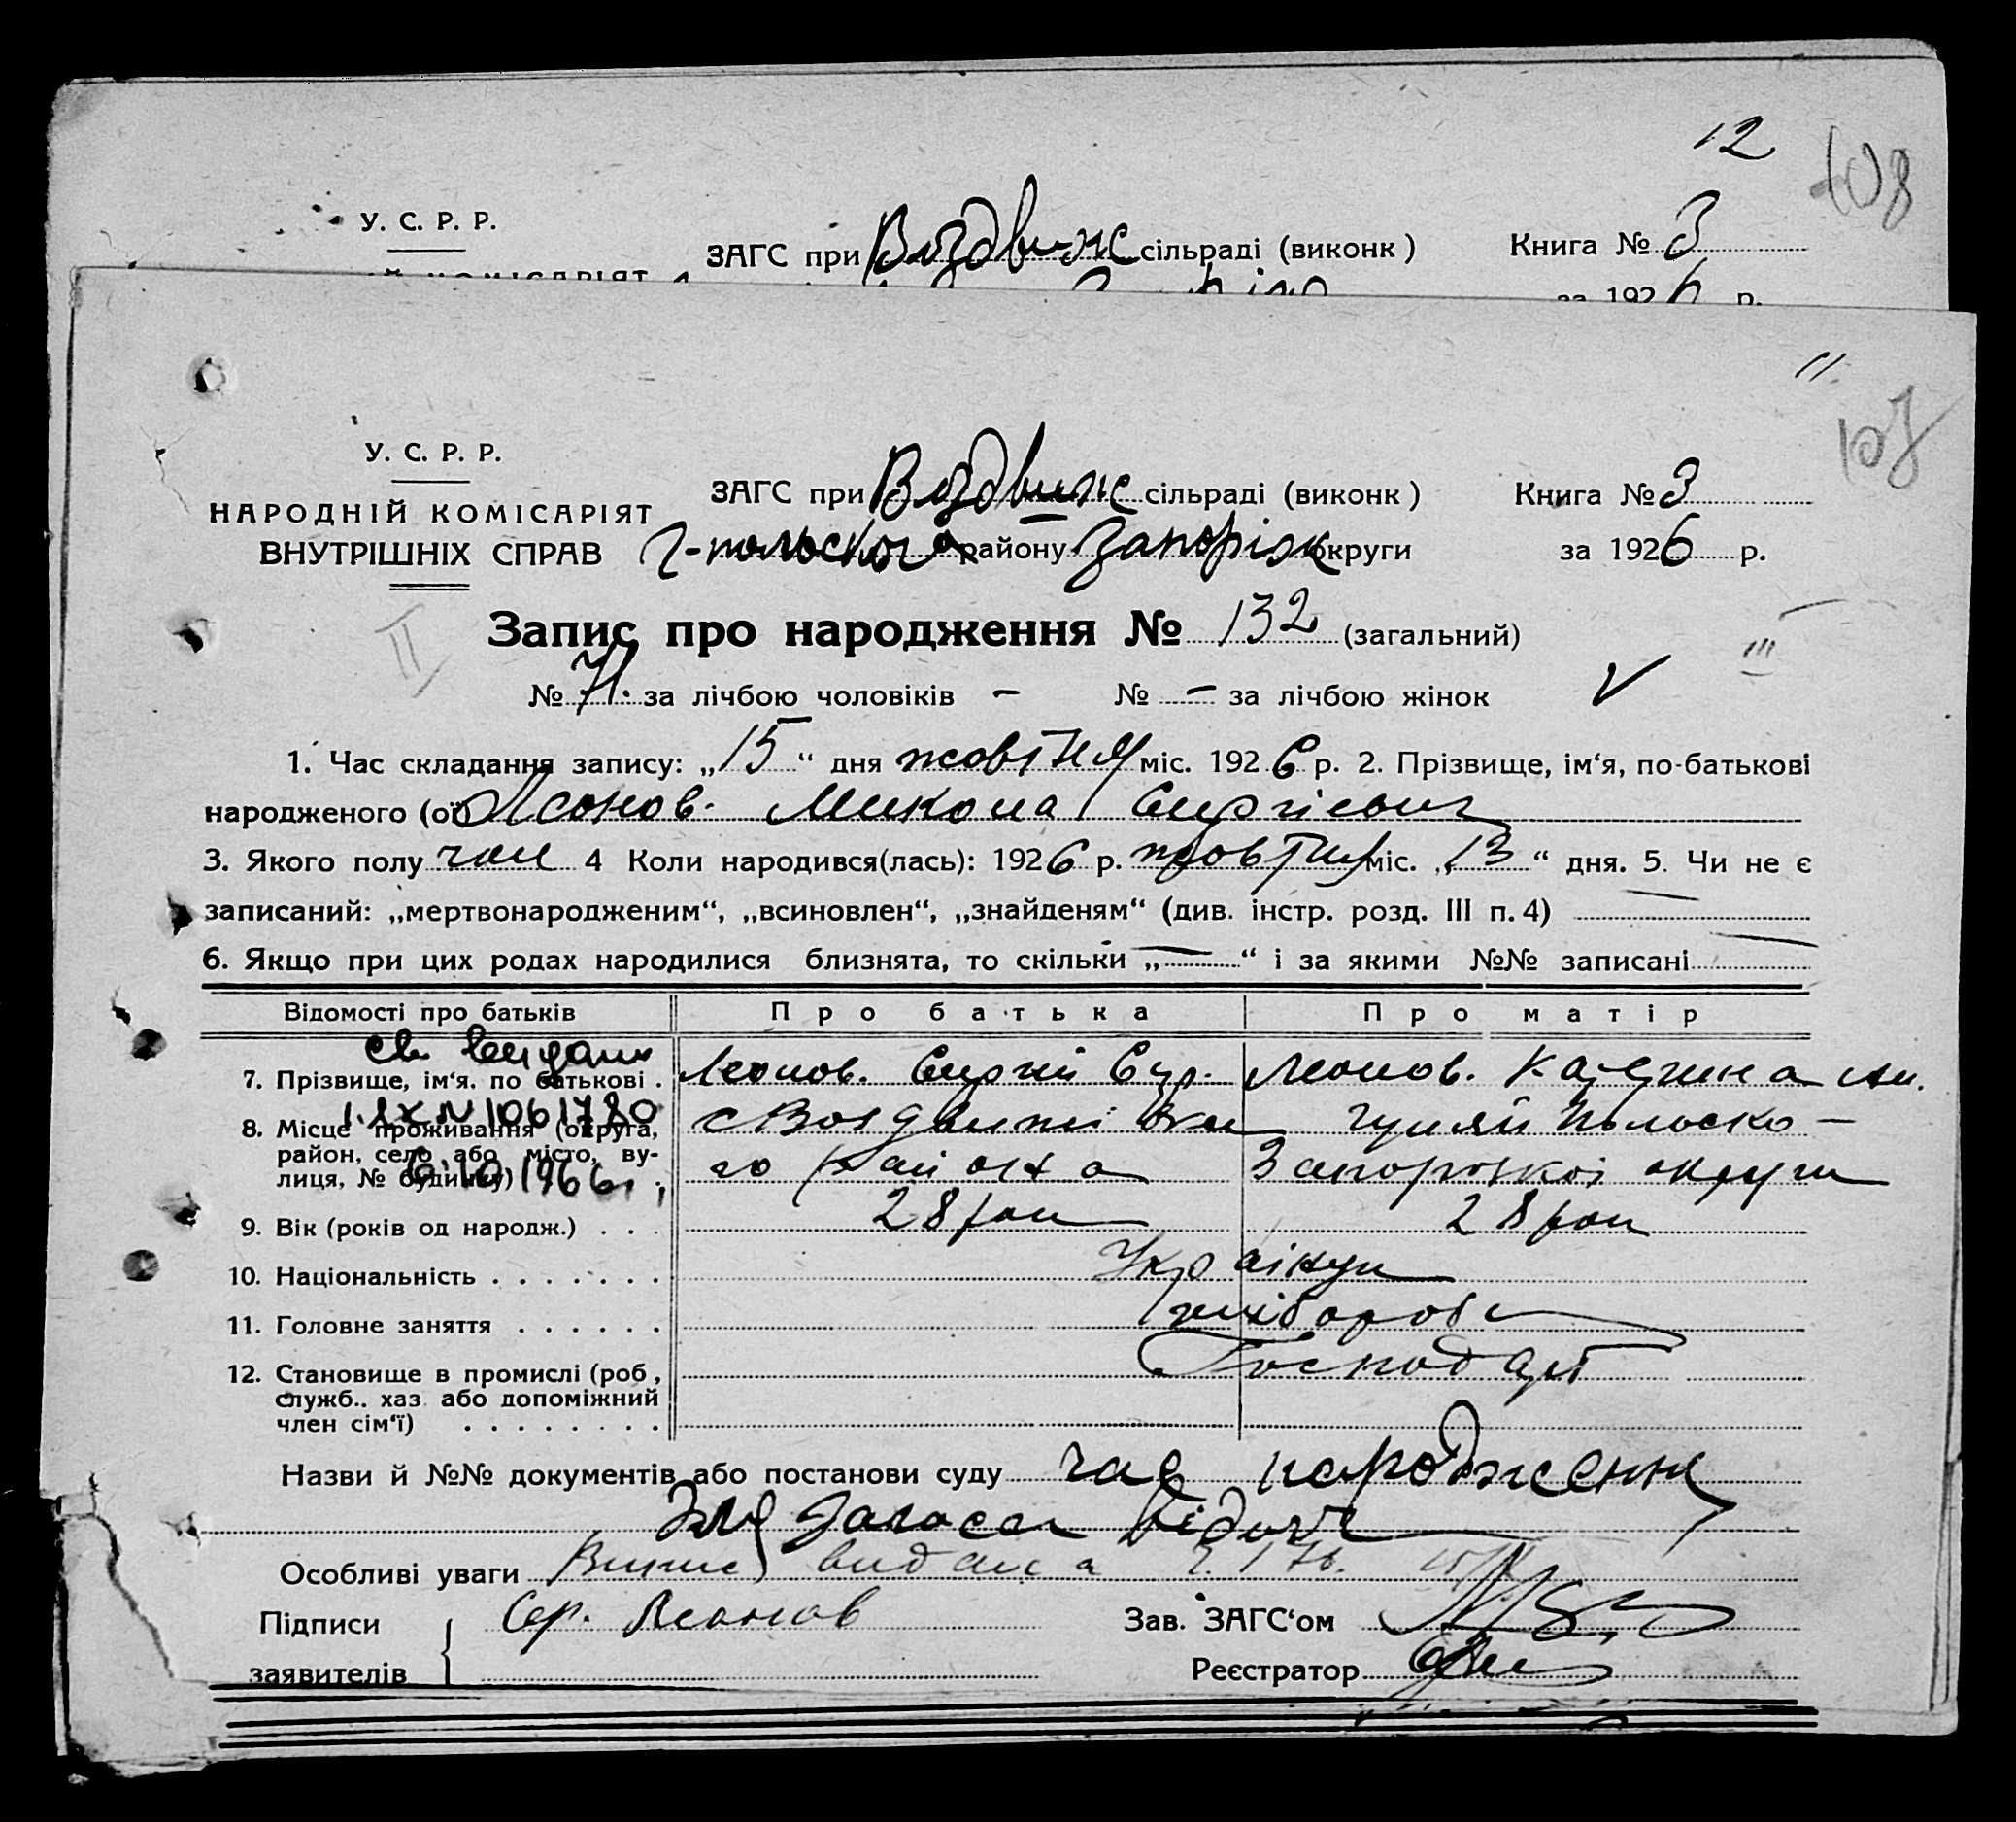 12
108
У. С. Р. Р.
ЗАГС при Воздвиж сільраді (виконк) Книга № 3
за 1926 р.
11.
107
У. С. Р. Р.
НАРОДНІЙ КОМІСАРІЯТ
ВНУТРІШНІХ СПРАВ
ЗАГС при Воздвиж сільраді (виконк) Книга № 3
Г-польского району Запоріж округи за 1926 р.
II
Запис про народження № 132 (загальний)
III
№ 71. за лічбою чоловіків – № – за лічбою жінок
1. Час складання запису: „15“ дня жовтня міс. 1926 р. 2. Прізвище, ім‘я, по-батькові
народженого (ої) Леонов Микола Сергієвич
3. Якого полу чол 4 Коли народився(лась): 1926 р. жовтня міс. „13“ дня. 5. Чи не є
записаний: „мертвонародженим“, „всиновлен“, „знайденям“ (див. інстр. розд. III п. 4) —
6. Якщо при цих родах народилися близнята, то скільки „—“ і за якими №№ записані —
Відомості про батьків Про батька Про матір
св. видано
7. Прізвище, ім‘я. по батькові . Леонов. Сергій Леонов. Катерина
№ 1061780
8. Місце проживання (округа, с Воздвижі Гуляй Польско-
район, село або місто, ву- го району Запорожкої округи
лиця, № будинку) 6.10.1966
9. Вік (років од народж.) . . . 28 рок 28 рок
10. Національність . . . . . . . Українці
11. Головне заняття . . . . . . хліборов
12. Становище в промислі (роб, Господарі
служб.. хаз або допоміжний
член сім‘ї) . . . . . . . .
Назви й №№ документів або постанови суду час народження
для загса відомо
Особливі уваги Випис видана
Підписи Сер. Леонов Зав. ЗАГС‘ом
заявителів Реєстратор